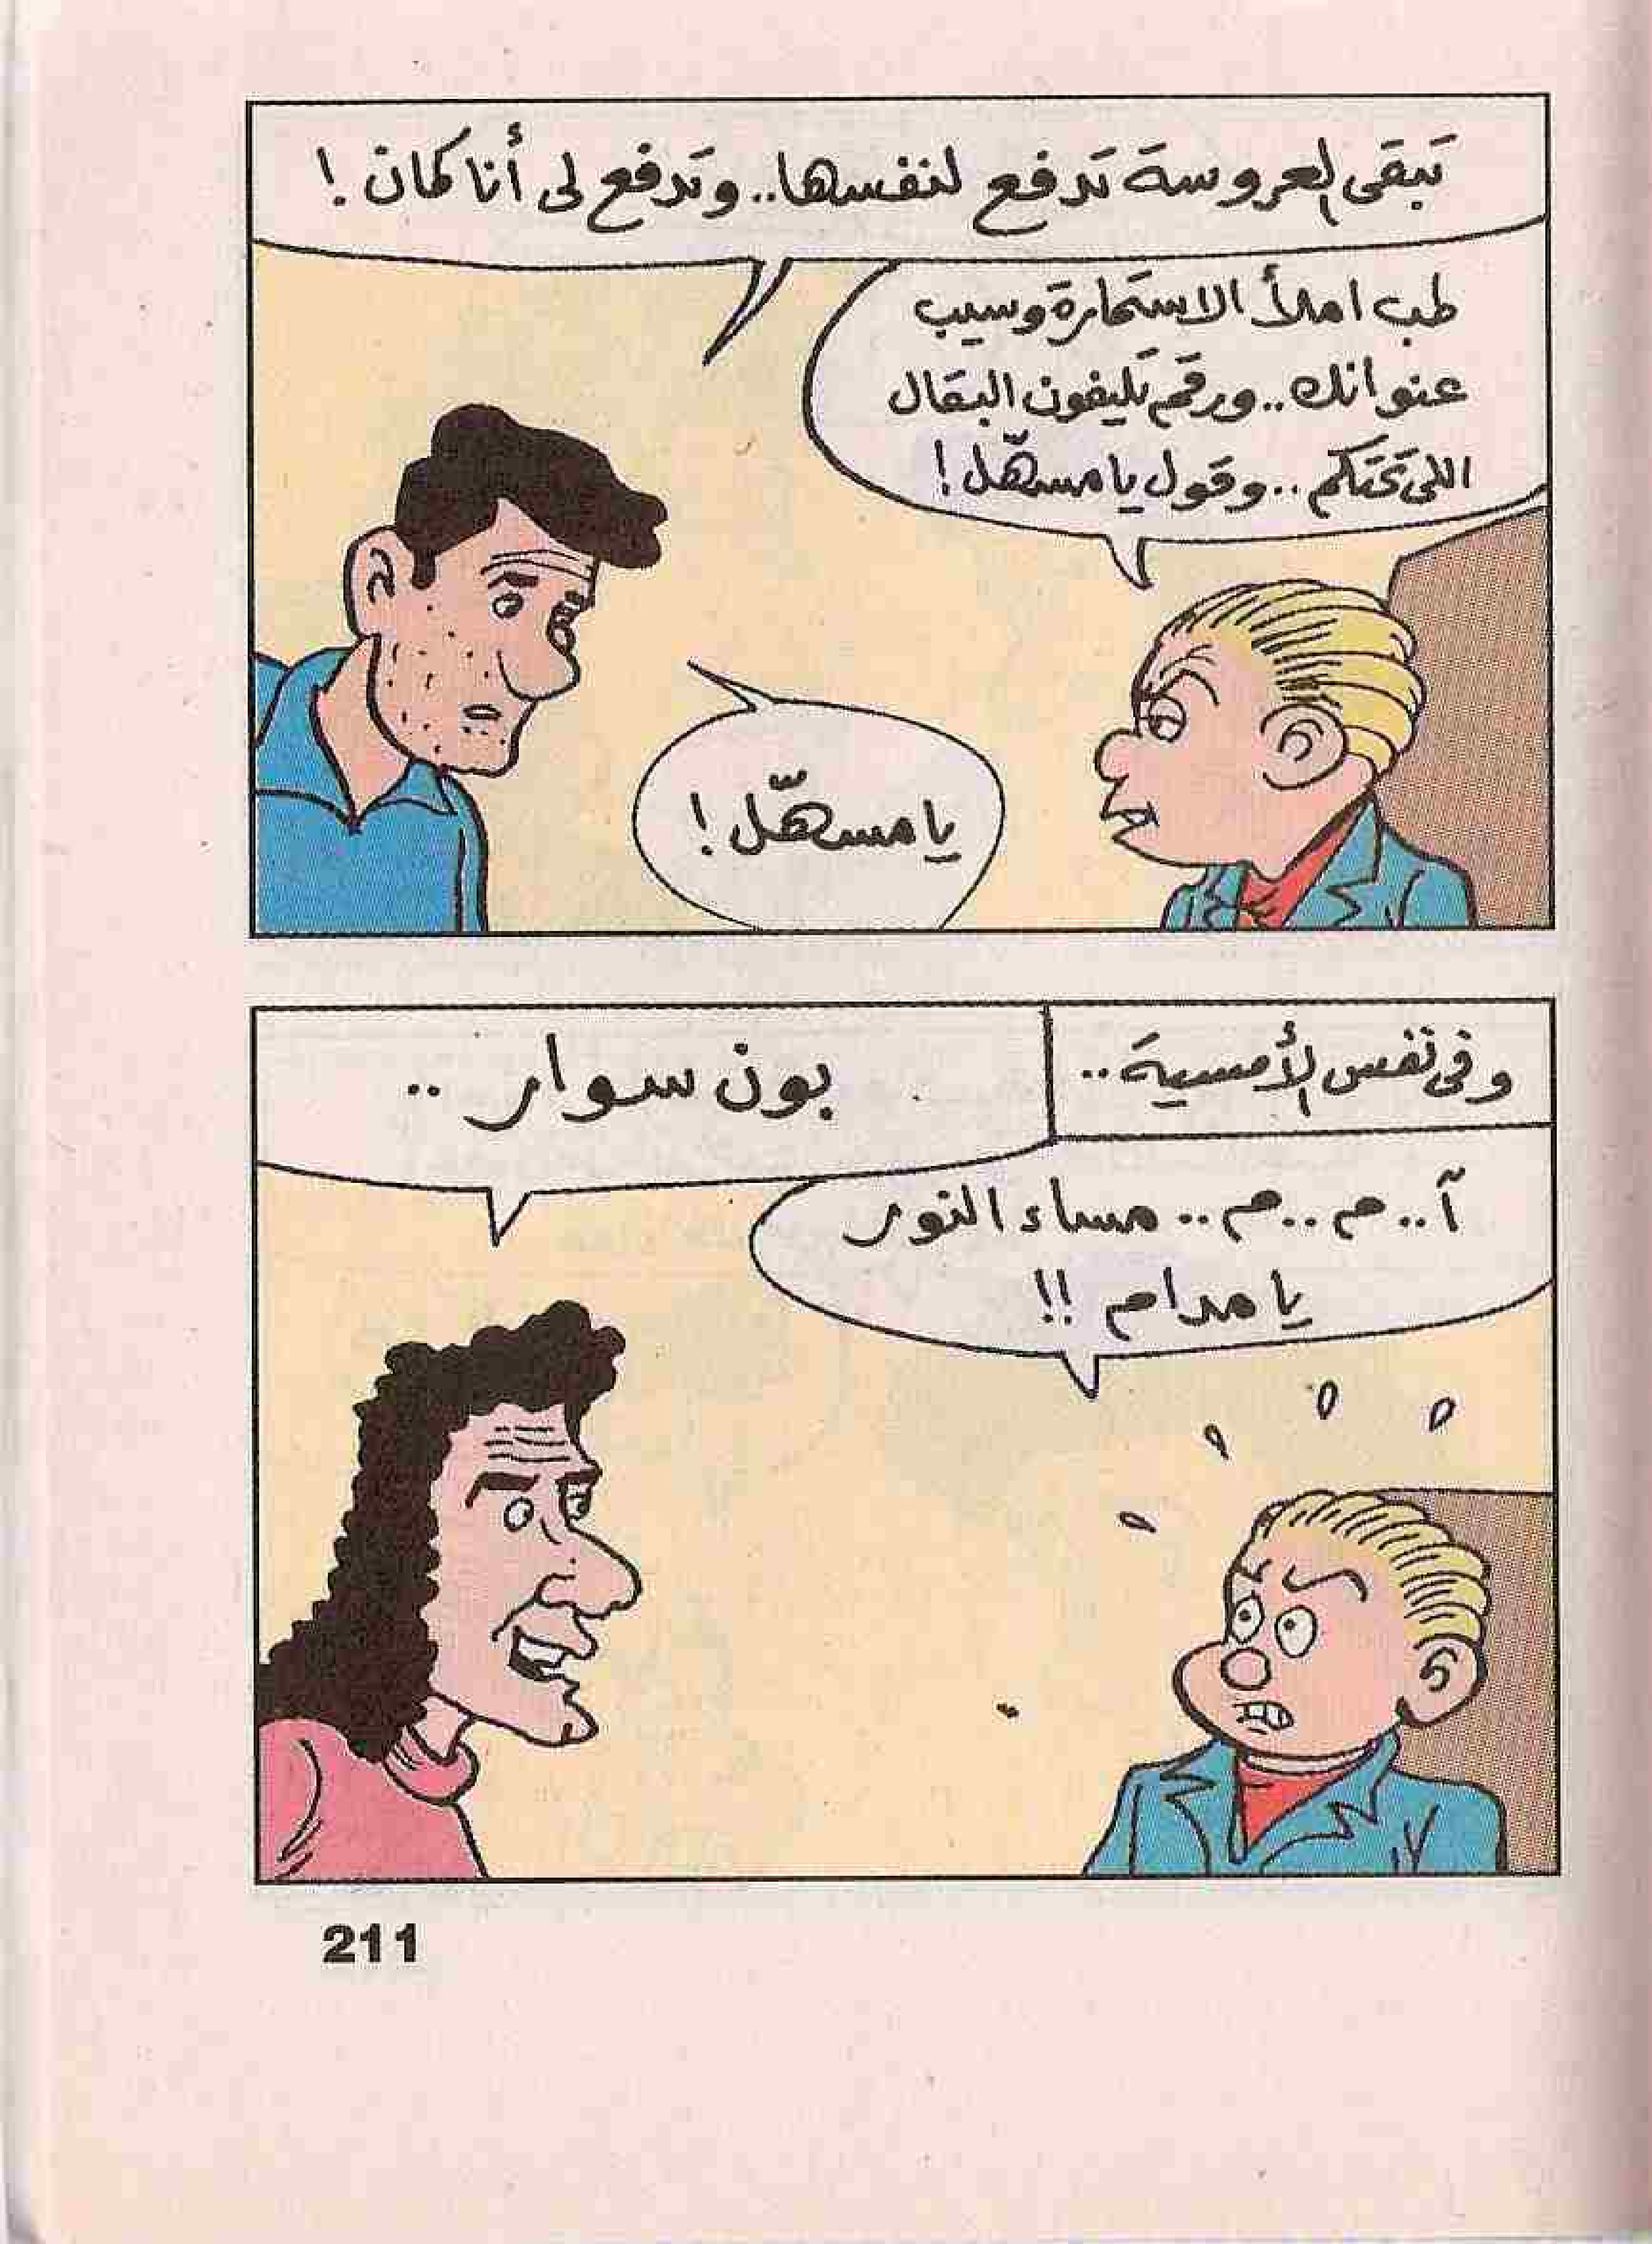 تبقى العروسة تدفع لنفسها.. وتدفع لى أنا كمان !
طب املأ الاستمارة وسيب
عنوانك.. ورقم تليفون البقال
اللى تحتكم.. وقول يا مسهّل !
يا مسهّل !
وفى نفس الأمسية..
بون سوار ..
آ.. م.. م.. مساء النور
يا مدام !!
211